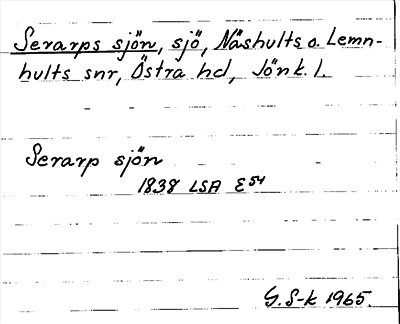 Serarps sjön, sjö, Näshults o. Lemn-
hults snr, Östra hd, Jönk. l.
Serarp sjön
1838 LSA E54
G. S-k 1965.